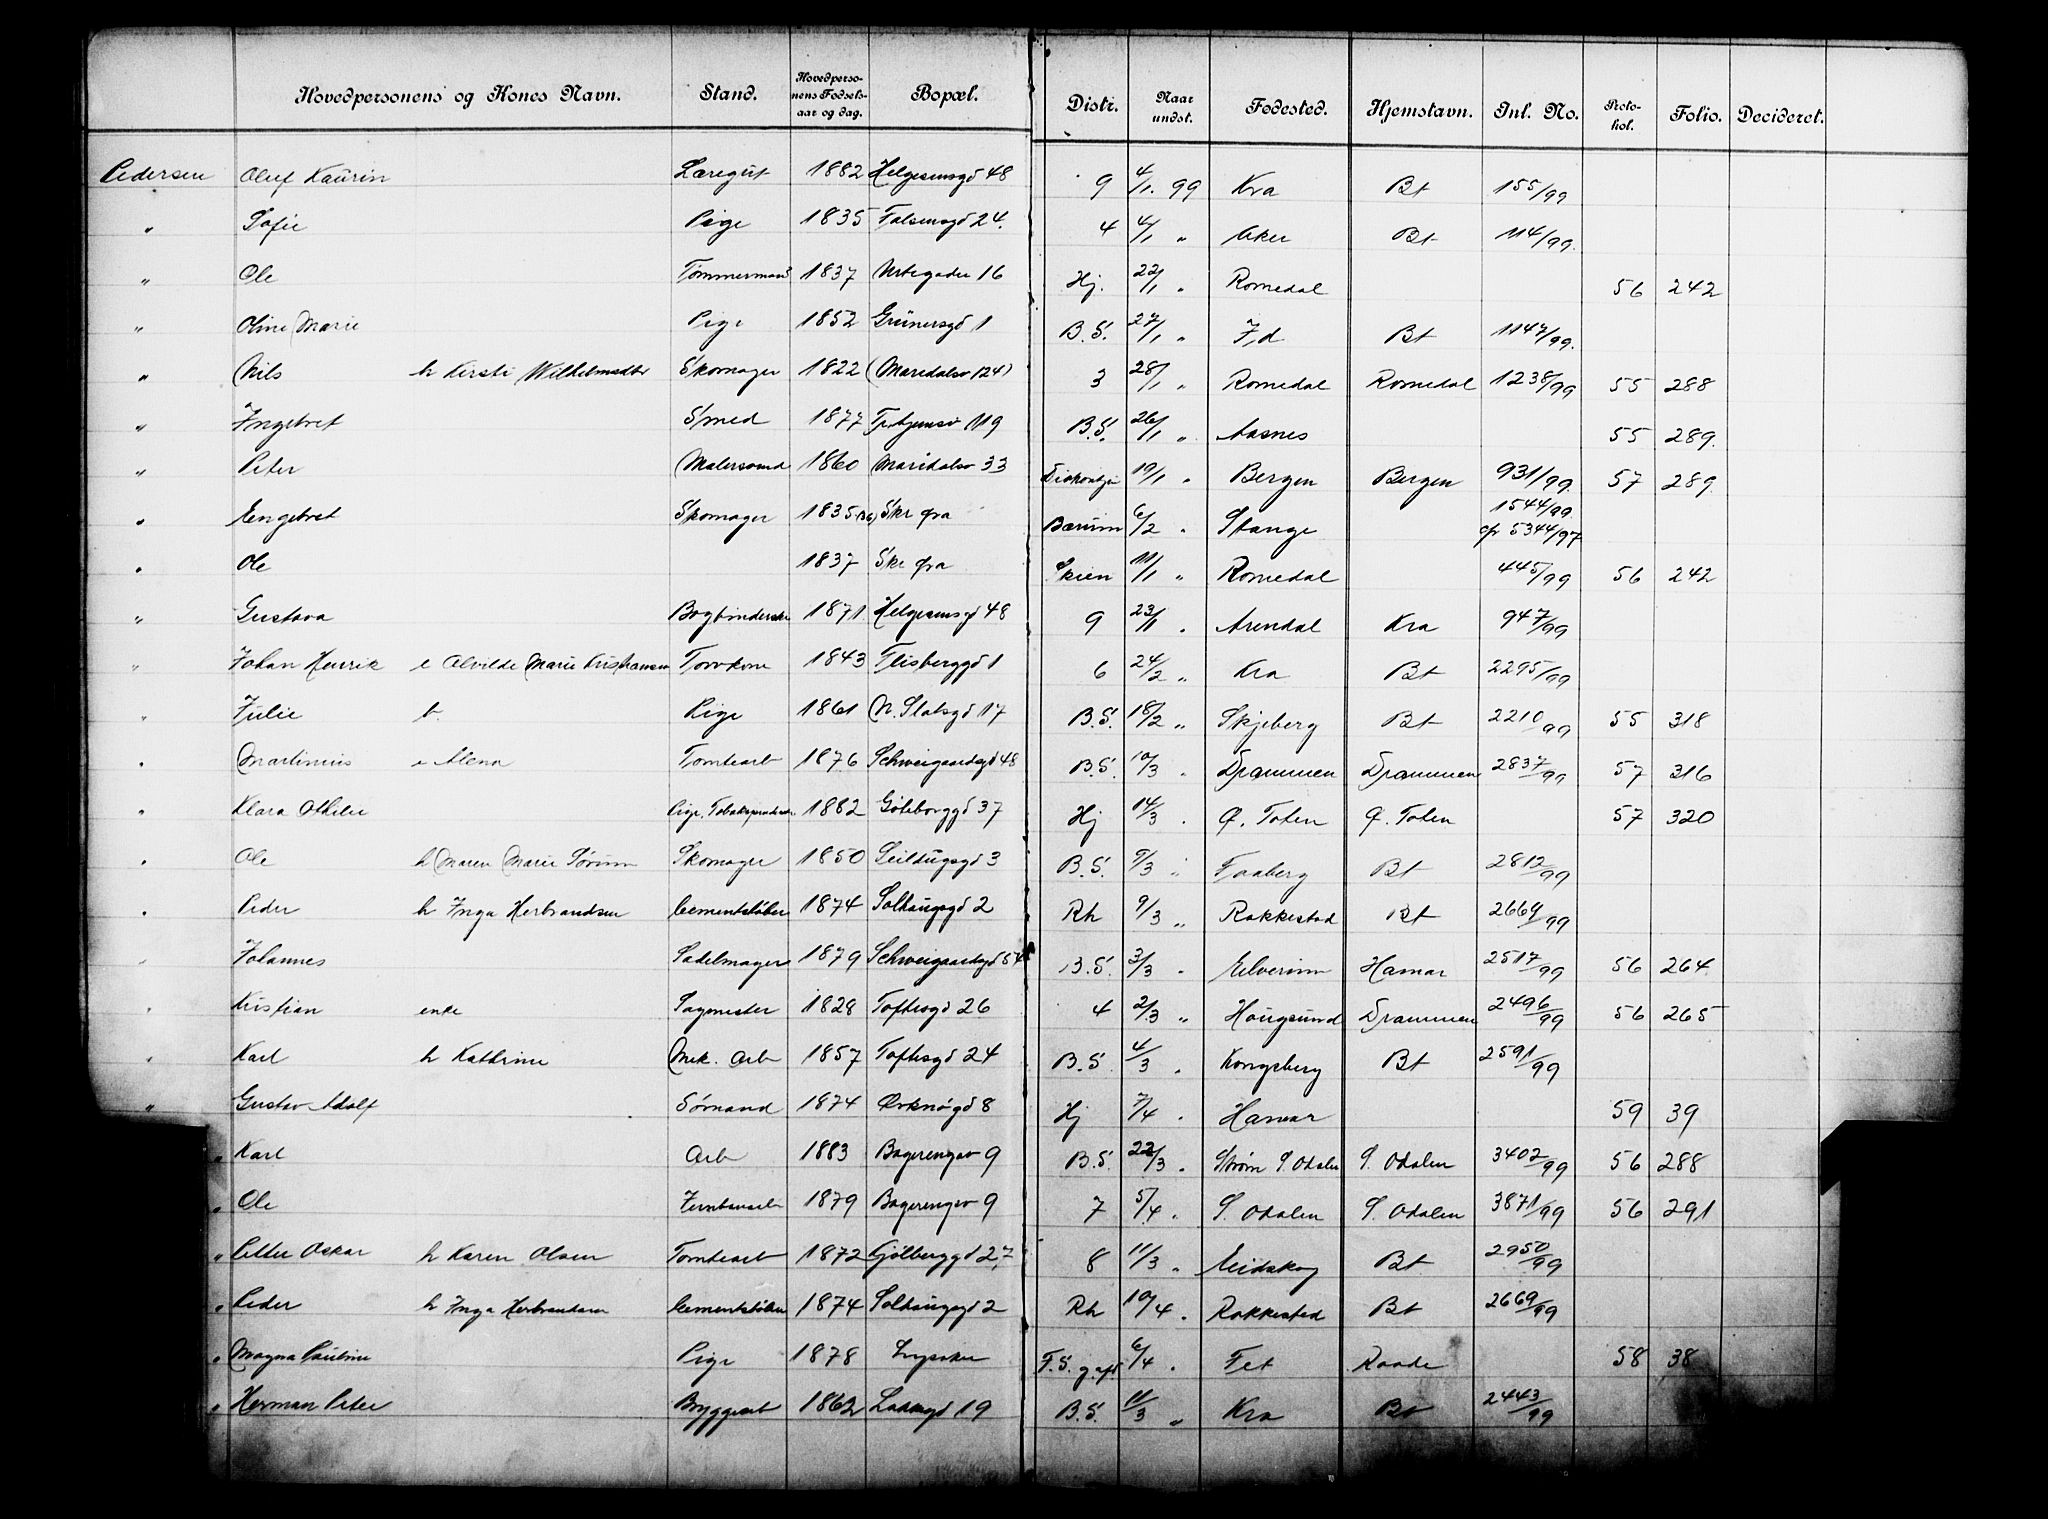 Hovedpersonens og Kones Navn. Stand. Hovedperso-nens Fødsels-aar og dag. Bopæl. Distr. Naar undst. Fødested. Hjemstavn. Inl. No. Proto-kol. Folio. Decideret.
Pedersen Oluf Kaurin Læregut 1882 Helgesensgd 48 9 4/1. 99 Kra Bt 155/99
" Sofie Pige 1835 Falsensgd 24. 4 4/1 " Aker Bt 114/99.
" Ole Tømmermand 1837 Urtegaden 16 Hj. 22/1 " Romedal 56 242
" Oline Marie Pige 1852 Grünersgd 1 B.S. 27/1 " Bt 1147/99.
" Nils h Kirsti Wilhelmsdtr Skomager 1822 (Maridalsv 124) 3 28/1 " Romedal Romedal 1238/99 55 288
" Ingebret Smed 1877 119 B.S. 26/1 " Aasnes 55 289.
" Peter Malersvend 1860 Maridalsv 33 19/1 " Bergen Bergen 931/99. 57 289.
" Engebret Skomager 1835 (36) Skr fra Bærum 6/2 " Stange 1544/99.
cfr 5344/97
" Ole 1837 Skr fra Skien 11/1 " Romedal 445/99 56 242
" Gustava Bogbinderske 1871 Helgesensgd 48 9 23/1 " Arendal Kra 947/99
" Johan Henrik e Alvilde Marie Kristiansen Torvkone 1843 Flisberggd 1 6 24/2 " Kra Bt 2295/99
" Julie Pige 1861 N. Slotsgd 17 B.S. 18/2 " Skjeberg Bt 2210/99 55 318
" Martinius e Alena Tomtearb 1876 Schweigaardsgd 48 B.S. 10/3 " Drammen Drammen 2837/99 57 316
" Klara Othilie Pige, Tobakspinderske 1882 Göteborggd 37 Hj 14/3 " Ø. Toten Ø. Toten 57 320
" Ole h Maren Marie Sørum Skomager 1850 Seildugsgd 3 B.S. 9/3 " Faaberg Bt 2812/99
" Peder h Inga Herbrandsen Cementstøber 1874 Solhaugsgd 2 Rh 9/3 " Rakkestad Bt 2669/99
" Johannes Sadelmager 1879 Schweigaardsgd 54 B.S. 3/3 " Elverum Hamar 2517/99 56 264.
" Kristian enke Sagmester 1828 Toftesgd 26 4 2/3 " Hougsund Drammen 2496/99 56 265
" Karl h Kathrine Mek. Arb 1857 Toftesgd 24 B.S. 4/3 " Kongsberg Bt 2591/99
" Gustav Adolf Sømand 1874 Orknøgd 8 Hj 7/4 " Hamar 59 39
" Karl Arb 1883 Bogerengav 9 B.S. 22/3 " Strøm S. Odalen S. Odalen 3402/99 56 288
" Ole Jernbanearb 1879 Bogerengav 9 7 5/4 " S. Odalen S. Odalen 3871/99 56 291
" Petter Oskar h Karen Olsen Tomtearb 1872 Kjølberggd 27 8 11/3 " Eidskog Bt 2950/99
" Peder h Inga Herbrandsen Cementstøber 1874 Solhaugsgd 2 Rh 19/4 " Rakkestad Bt 2669/99
" Magna Pauline Pige 1878 Lysaker F.S. g.afd 6/4 " Fet Raade 58 38
" Herman Peter Byggearb 1862 Lakkegd 19 B.S. 11/3 " Kra Bt 2443/99